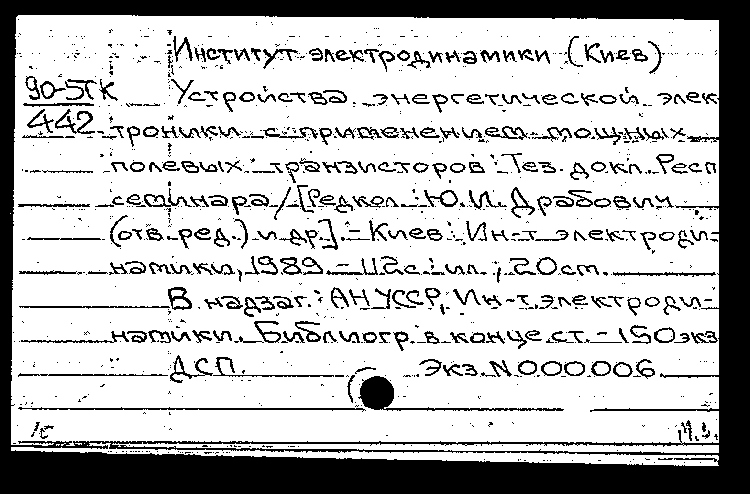 Институт электродинамики (Киев)
90-5ГК Устройства энергетической элек-
442 троники с применением мощных
полевых транзисторов : Тез. докл. Респ.
семинара / [Редкол.: Ю. И. Драбович
(отв. ред.) и др.]. - Киев : Ин-т электроди-
намики, 1989. - 112 с. : ил. ; 20 см.
В надзаг.: АН УССР, Ин-т электроди-
намики. Библиогр. в конце ст. - 150 экз.
ДСП. Экз. N 000006.